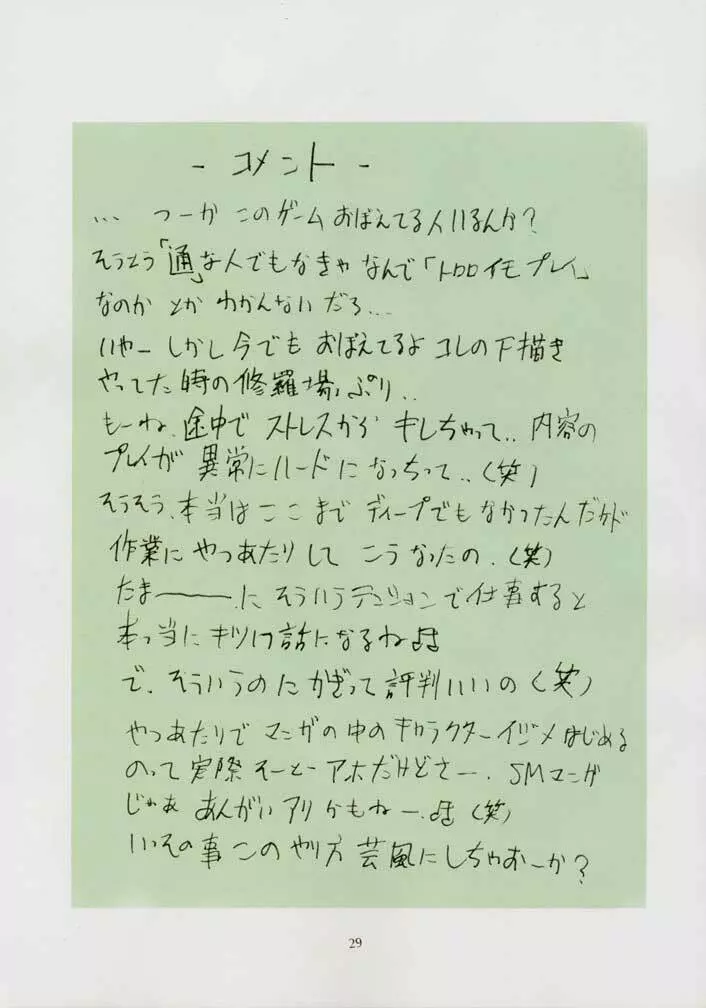 - コメント -
... つーか このゲーム おぼえてる人いるんか?
そうとう「通」な人でもなきゃ なんで「トロロイモプレイ」
なのか とか わかんないだろ...
いやー しかし今でも おぼえてるよ コレの下描き
やってた時の修羅場ぷり..
もーね、途中で ストレスから キレちゃって.. 内容の
プレイが 異常にハードになっちって..(笑)
そうそう、本当は ここまで ディープでもなかったんだけど
作業に やつあたりして こうなったの.(笑)
たまーーーに そういうテンションで仕事すると
本っ当に キツい話になるね♪
で、そういうのに かぎって 評判いいの(笑)
やつあたりで マンガの中のキャラクターイジメはじめる
のって 実際 そーとーアホだけどさー. SMマンガ
じゃあ あんがいアリ かもねー.♪(笑)
いっその事 このやり方 芸風にしちゃおーか?
29